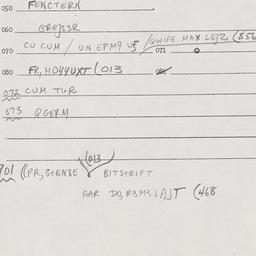 050 FENCTERN
060 GREJS3R
070 CU CUM / UN EPM9 U5 / QWIFE MAX LEJZ (856 071
080 FR, HO44UXT (013
072 CUM TIOR
073 QGERM
901 ((PR, STENSE (013 BITSTRIFT
FAR DO, R3M3. LAJT (468